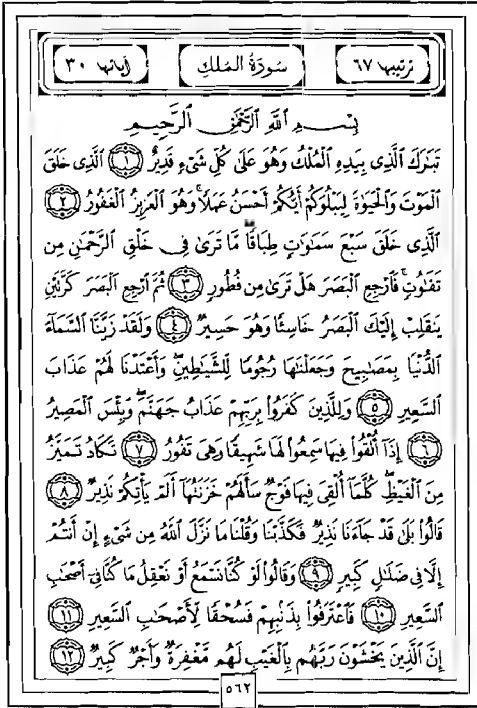 ترتيبها ٦٧ سُورَةُ المُلكِ آياتها ٣٠
بِسْمِ ٱللَّهِ ٱلرَّحْمَٰنِ ٱلرَّحِيمِ
تَبَٰرَكَ ٱلَّذِى بِيَدِهِ ٱلْمُلْكُ وَهُوَ عَلَىٰ كُلِّ شَىْءٍ قَدِيرٌ ١ ٱلَّذِى خَلَقَ
ٱلْمَوْتَ وَٱلْحَيَوٰةَ لِيَبْلُوَكُمْ أَيُّكُمْ أَحْسَنُ عَمَلًا ۚ وَهُوَ ٱلْعَزِيزُ ٱلْغَفُورُ ٢
ٱلَّذِى خَلَقَ سَبْعَ سَمَٰوَٰتٍ طِبَاقًا مَّا تَرَىٰ فِى خَلْقِ ٱلرَّحْمَٰنِ مِن
تَفَٰوُتٍ ۖ فَٱرْجِعِ ٱلْبَصَرَ هَلْ تَرَىٰ مِن فُطُورٍ ٣ ثُمَّ ٱرْجِعِ ٱلْبَصَرَ كَرَّتَيْنِ
يَنقَلِبْ إِلَيْكَ ٱلْبَصَرُ خَاسِئًا وَهُوَ حَسِيرٌ ٤ وَلَقَدْ زَيَّنَّا ٱلسَّمَآءَ
ٱلدُّنْيَا بِمَصَٰبِيحَ وَجَعَلْنَٰهَا رُجُومًا لِّلشَّيَٰطِينِ ۖ وَأَعْتَدْنَا لَهُمْ عَذَابَ
ٱلسَّعِيرِ ٥ وَلِلَّذِينَ كَفَرُوا۟ بِرَبِّهِمْ عَذَابُ جَهَنَّمَ ۖ وَبِئْسَ ٱلْمَصِيرُ
٦ إِذَآ أُلْقُوا۟ فِيهَا سَمِعُوا۟ لَهَا شَهِيقًا وَهِىَ تَفُورُ ٧ تَكَادُ تَمَيَّزُ
مِنَ ٱلْغَيْظِ ۖ كُلَّمَآ أُلْقِىَ فِيهَا فَوْجٌ سَأَلَهُمْ خَزَنَتُهَآ أَلَمْ يَأْتِكُمْ نَذِيرٌ ٨
قَالُوا۟ بَلَىٰ قَدْ جَآءَنَا نَذِيرٌ فَكَذَّبْنَا وَقُلْنَا مَا نَزَّلَ ٱللَّهُ مِن شَىْءٍ إِنْ أَنتُمْ
إِلَّا فِى ضَلَٰلٍ كَبِيرٍ ٩ وَقَالُوا۟ لَوْ كُنَّا نَسْمَعُ أَوْ نَعْقِلُ مَا كُنَّا فِىٓ أَصْحَٰبِ
ٱلسَّعِيرِ ١٠ فَٱعْتَرَفُوا۟ بِذَنۢبِهِمْ فَسُحْقًا لِّأَصْحَٰبِ ٱلسَّعِيرِ ١١
إِنَّ ٱلَّذِينَ يَخْشَوْنَ رَبَّهُم بِٱلْغَيْبِ لَهُم مَّغْفِرَةٌ وَأَجْرٌ كَبِيرٌ ١٢
٥٦٢